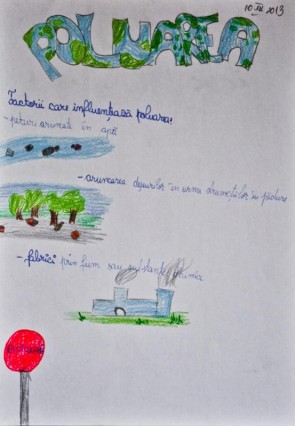 10 XII 2013
POLUAREA
Factorii care influențează poluarea:
- peturi aruncate în apă
- aruncarea deșeurilor în urma drumețiilor în pădure
- fabrici prin fum sau substanțe